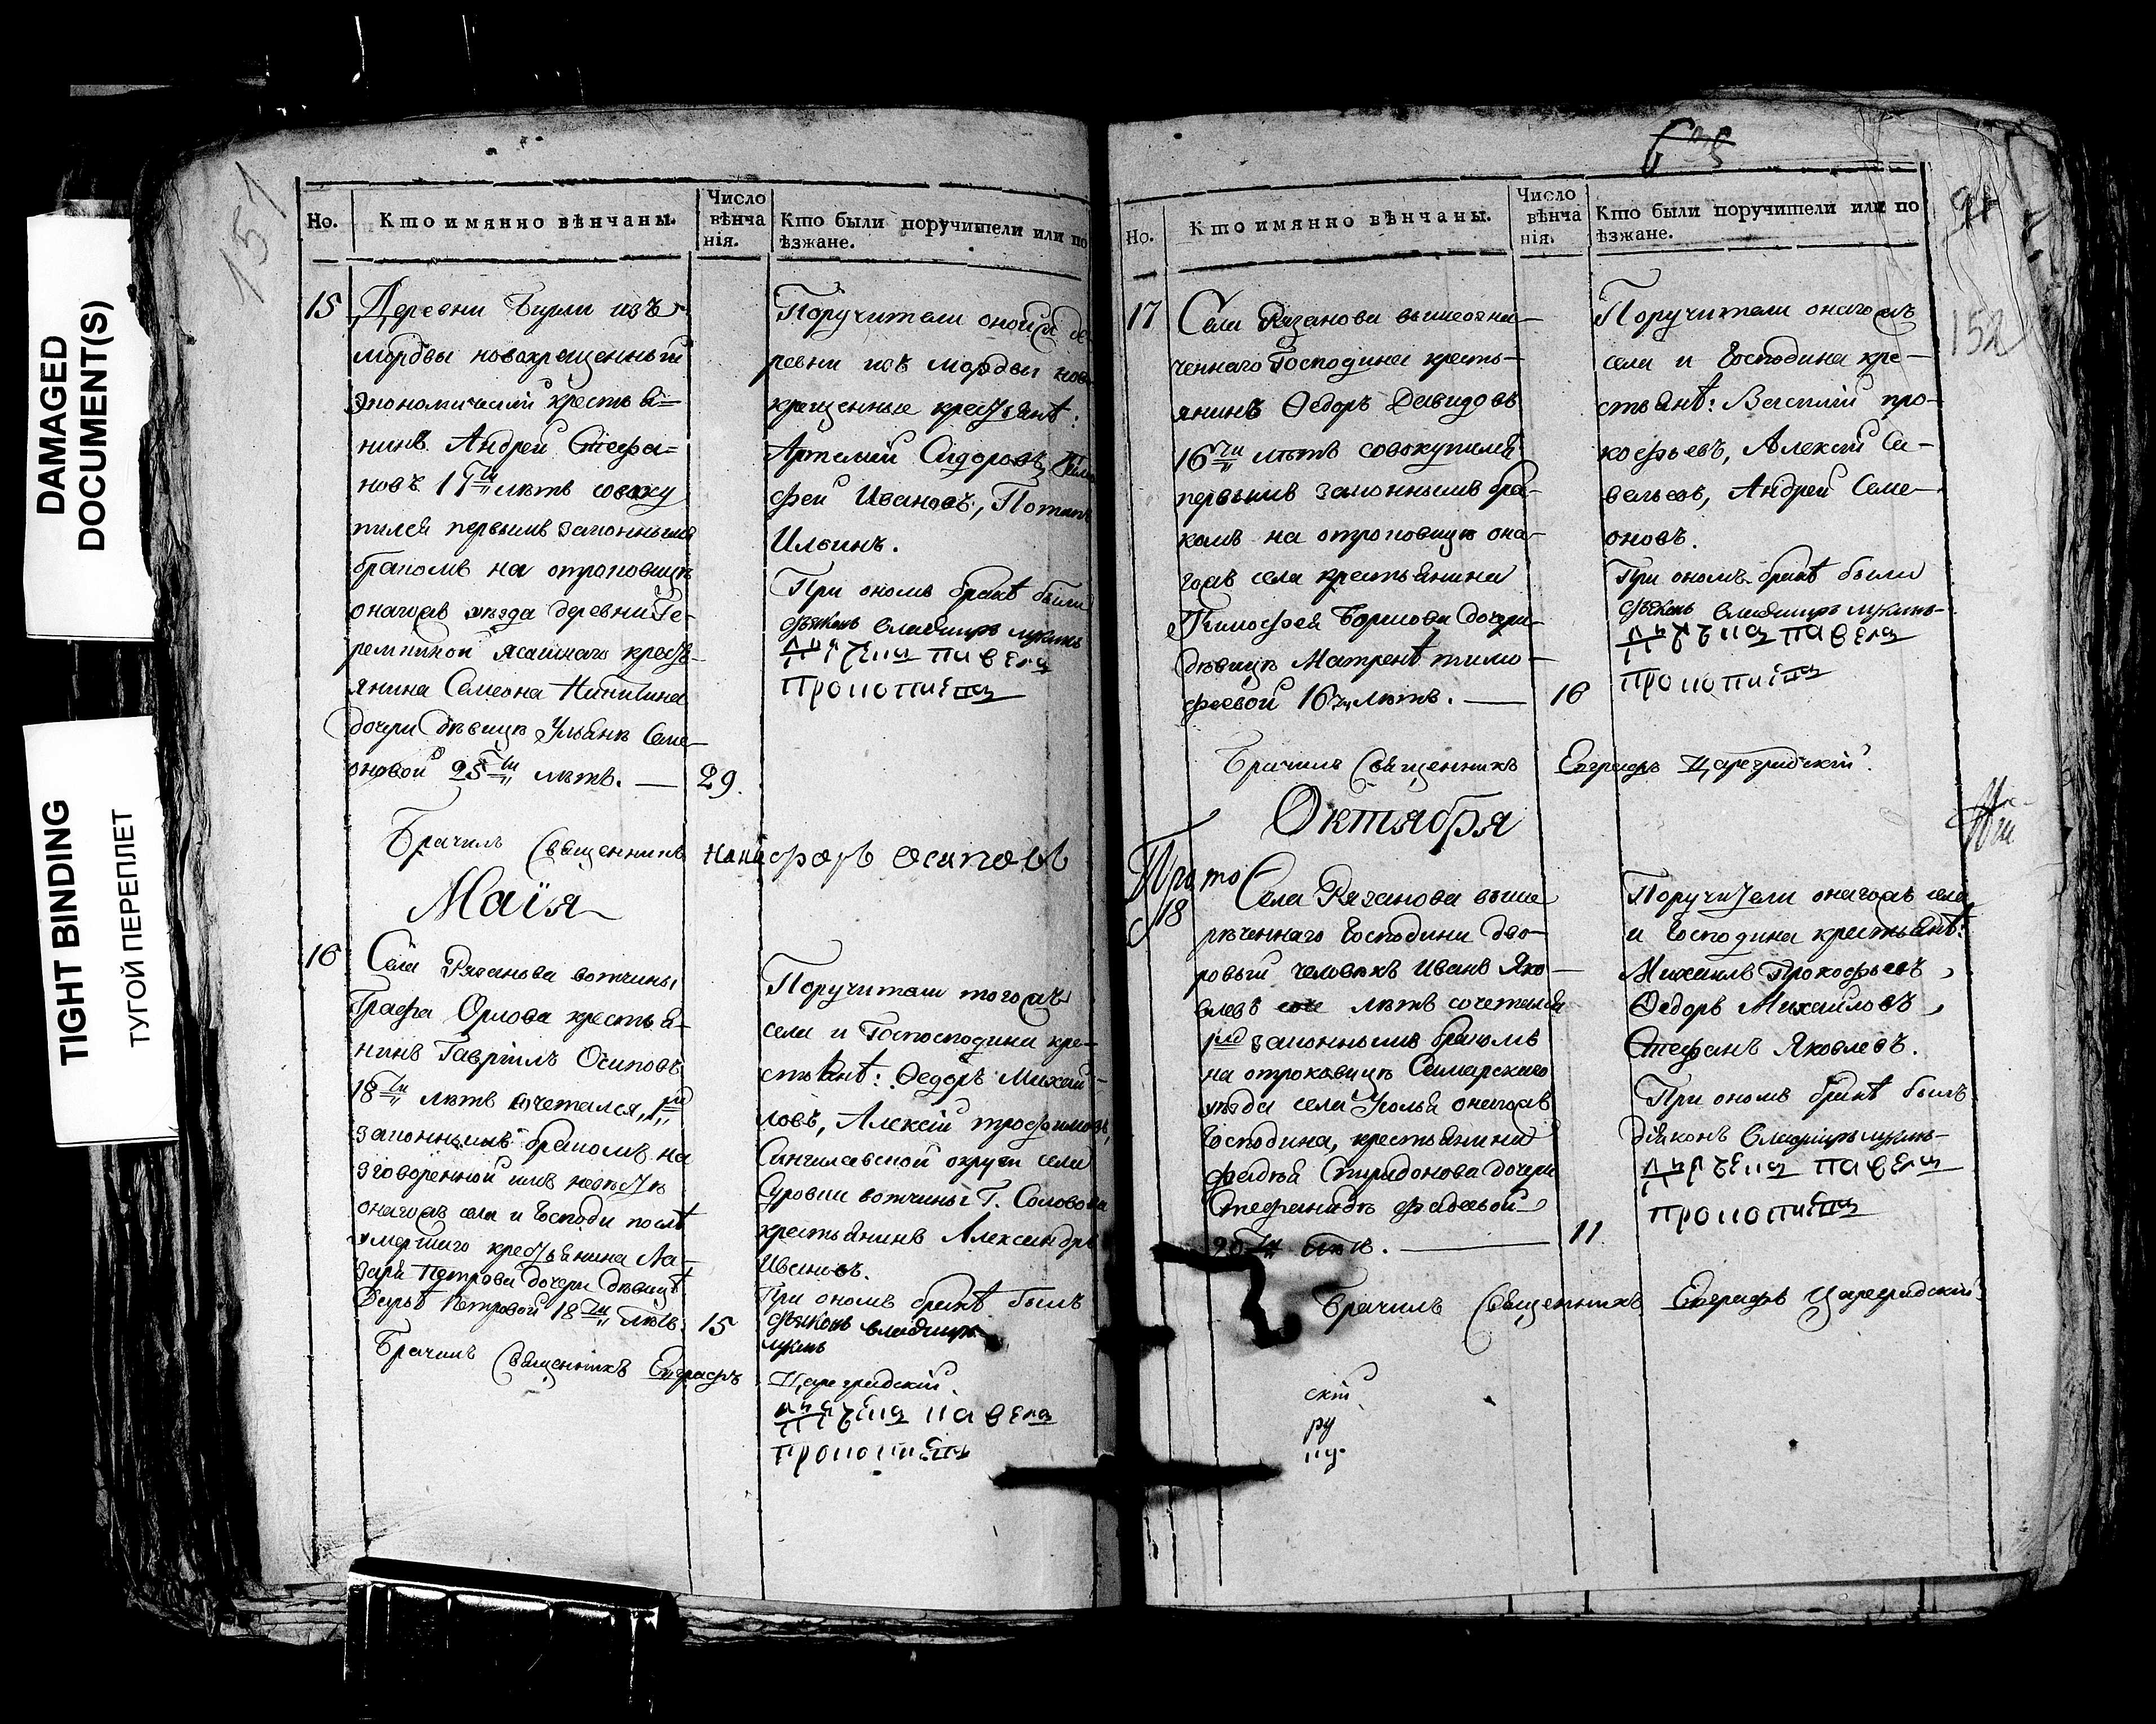 DAMAGED
DOCUMENT(S)
TIGHT BINDING
ТУГОЙ ПЕРЕПЛЕТ
151
Но.
Кто имянно вѣнчаны.
Число
вѣнча
нія.
Кто были поручители или по
ѣзжане.
15
Деревни изъ
мордвы новокрещенный
экономический крестья=
нинъ Андрей Стефа=
новъ 17ти лѣтъ совоку
пился первымъ законнымъ
бракомъ на отроковицѣ
оногожъ уѣзда деревни Те-
ремшиной ясашнаго кресть-
янина Семеона Никитина
дочери дѣвицѣ Ульянѣ Семе-
оновой 25ти лѣтъ. —
29.
Поручители оной
ревни изъ мордвы ново
крещенные крестьянѣ:
Артемий Сидоровъ,
фей Ивановъ, Потапъ
Ильинъ.
При ономъ бракѣ были
дьяконъ владимиръ лукинъ
Брачилъ Священникъ Никифоръ Осиповъ
Маія
16
Села Рязанова вотчины
Графа Орлова крестья-
нинъ Гавріилъ Осиповъ
18ти лѣтъ сочетался, 1мъ
законнымъ бракомъ на
зговоренной имъ невѣстѣ
оногожъ села и Господи послѣ
умершаго крестьянина Ла-
заря Петрова дочери дѣвицѣ
Дарьѣ Петровой 18ти лѣтъ.
15
Поручители тогожъ
села и Госпосподина кре-
стьянѣ: Ѳедоръ Михай-
ловъ, Алексій трофимовъ,
Сингилевской округи села
Суровки вотчины Г. Соловова
крестьянинъ Александръ
Ивановъ.
При ономъ бракѣ былъ
дьяконъ владимиръ
лукинъ
Брачилъ Священникъ Евграфъ
Цареградскій.
Но.
Кто имянно вѣнчаны.
Число
вѣнча
нія.
Кто были поручители или по
ѣзжане.
152
17
Села Рязанова вышеозна-
ченнаго Господина кресть-
янинъ Ѳедоръ Давидовъ
16ти лѣтъ совокупился
первымъ законнымъ бра-
комъ на отроковицѣ она-
гожъ села крестьянина
Тимофея Борисова дочери
дѣвицѣ Матренѣ тимо-
феевой 16ти лѣтъ. —
16
Поручители оногожъ
села и Господина кре-
стьянѣ: Василий про-
кофьевъ, Алексей Са-
вельевъ, Андрей Семе-
оновъ.
При ономъ бракѣ были
дьяконъ владимиръ лукинъ
Брачилъ Священникъ Евграфъ Цареградскій.
Октября
18
Села Рязанова выше
рѣченнаго Господина дво-
ровый человѣкъ Иванъ Яко-
влевъ лѣтъ сочетался
1мъ законнымъ бракомъ
на отроковицѣ Самарскаго
уѣзда села Усолья оногожъ
Господина, крестьянина
фадѣя Спиридонова дочери
Стефанидѣ фадѣевой
20ти лѣтъ. —
11
Поручители оногожъ села
и Господина крестьянѣ:
Михаилъ Прокофьевъ,
Ѳедоръ Михаиловъ,
Стефанъ Яковлевъ.
При ономъ бракѣ былъ
діяконъ владимиръ лукинъ
Брачилъ Священникъ Евграфъ Цареградскій.
скій
ру